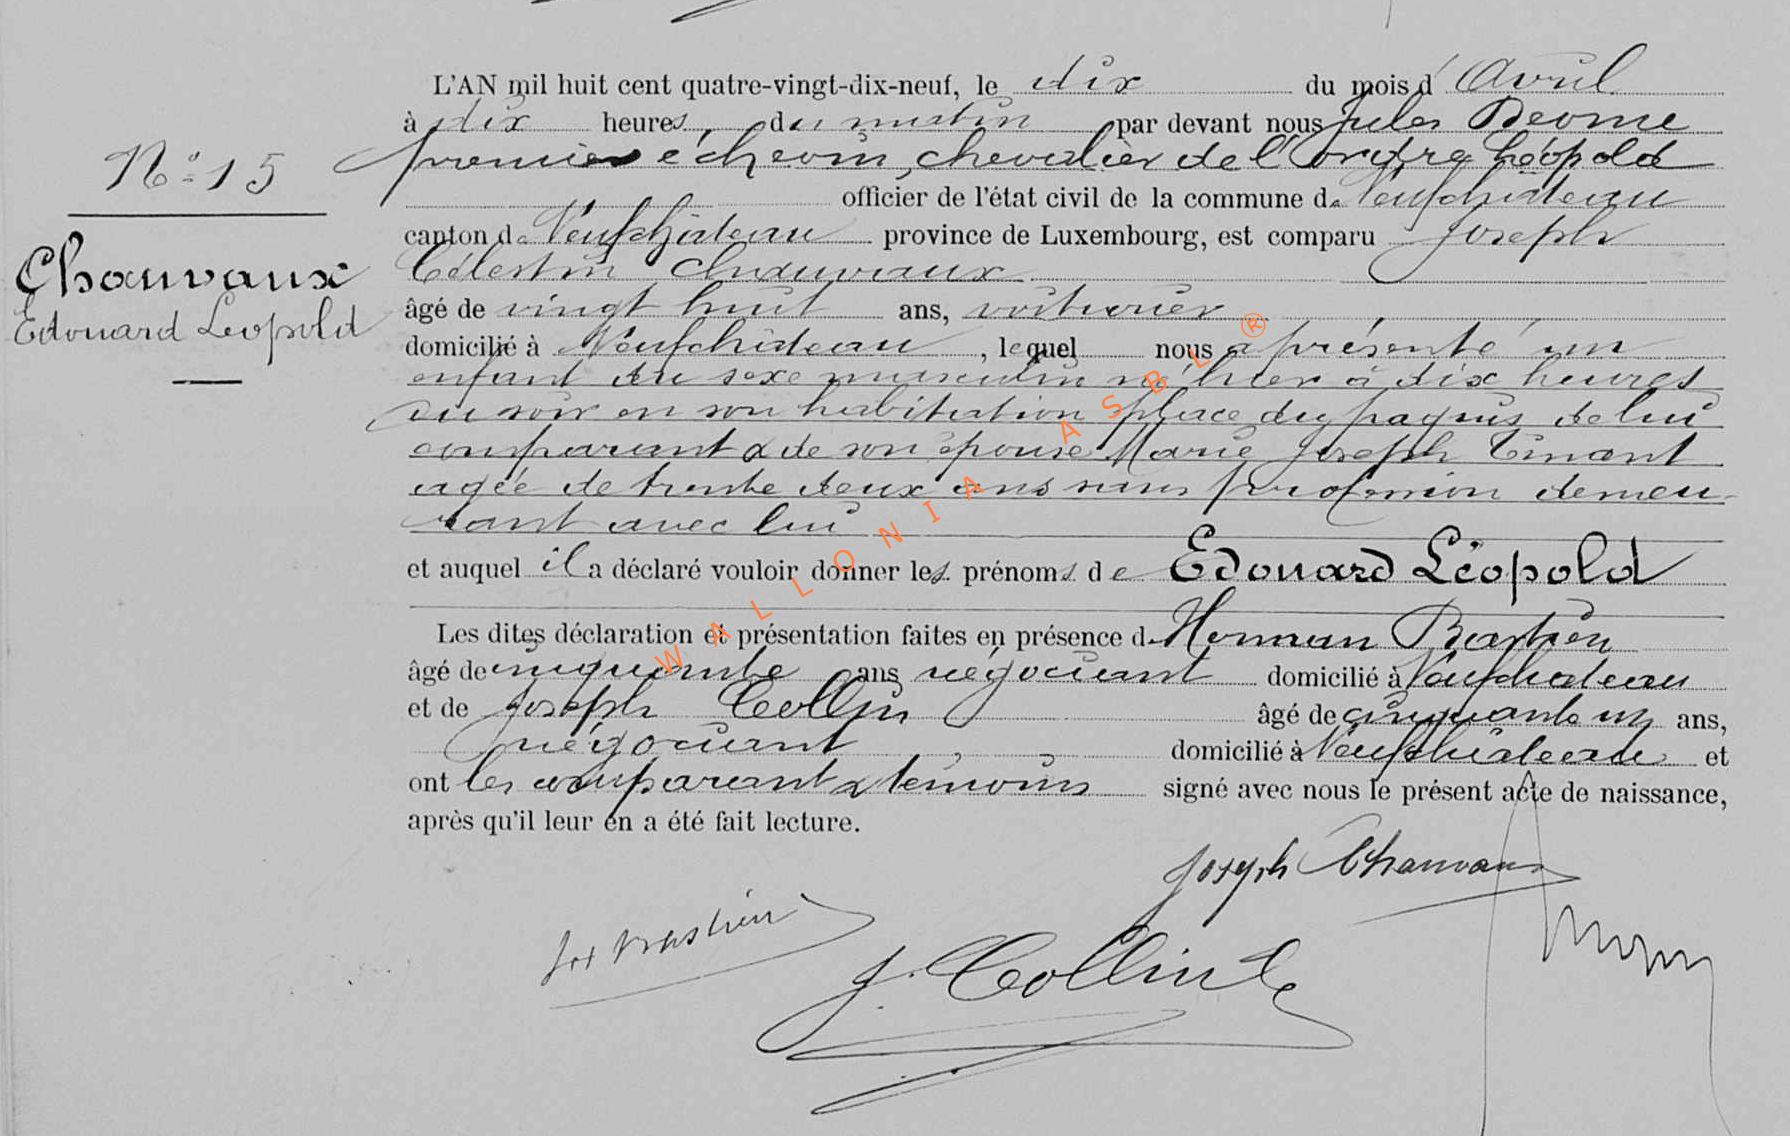 L'AN mil huit cent quatre-vingt-dix-neuf, le dix du mois d'Avril
à dix heures, du matin par devant nous Jules
premier échevin, chevalier de l'ordre Léopold
officier de l'état civil de la commune de Neufchâteau
canton de Neufchâteau province de Luxembourg, est comparu Joseph
Célestin Chauvaux
âgé de vingt huit ans, voiturier
domicilié à Neufchâteau, lequel nous a présenté un
enfant du sexe masculin né hier à dix heures
du soir en son habitation place du paquis de lui
comparant & de son épouse Marie Joseph Tinant
agée de trente deux ans sans profession demeu-
rant avec lui
et auquel il a déclaré vouloir donner les prénoms de Edouard Léopold
Les dites déclaration et présentation faites en présence de Herman Bastien
âgé de cinquante ans négociant domicilié à Neufchateau
et de Joseph Collin âgé de cinquante un ans,
négociant domicilié à Neufchâteau et
ont les comparant & témoins signé avec nous le présent acte de naissance,
après qu'il leur en a été fait lecture.
N° 15
Chauvaux
Edouard Léopold
Joseph Chauvaux
Bastien
J. Collin
WALLONIA ASBL ®